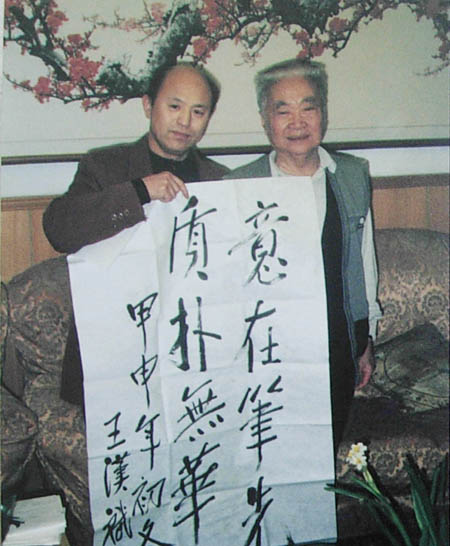 意在筆先
质朴無華
甲申年初
王漢斌